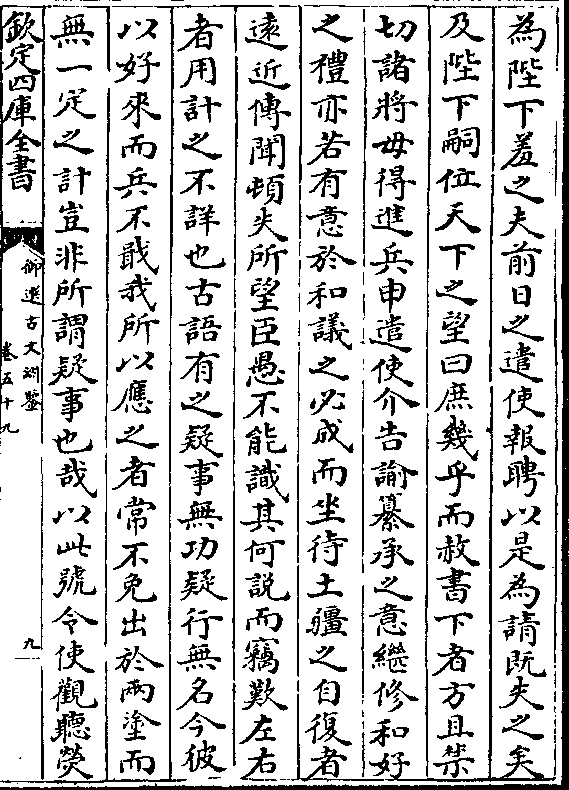 為陛下羞之夫前日之遣使報聘以是為請既失之矣
及陛下嗣位天下之望曰庶幾乎而赦書下者方且禁
切諸將毋得進兵申遣使介告諭纂承之意繼修和好
之禮亦若有意於和議之必成而坐待土疆之自復者
遠近傳聞頓失所望臣愚不能識其何說而竊歎左右
者用計之不詳也古語有之疑事無功疑行無名今彼
以好來而兵不戢我所以應之者常不免出於兩塗而
無一定之計豈非所謂疑事也哉以此號令使觀聽熒
欽定四庫全書
御選古文淵鑒
卷五十九
九